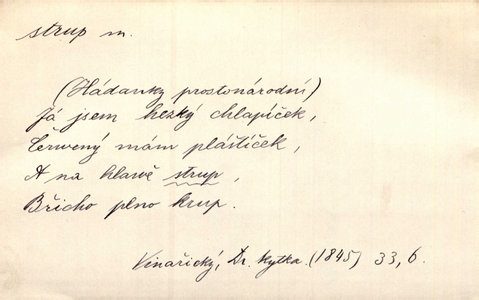 strup m.
(Hádanky prostonárodní)
Já jsem hezký chlapíček,
Červený mám pláštíček,
A na hlawě strup,
Břicho plno krup.
Vinařický, Dr. Kytka. (1845) 33, 6.